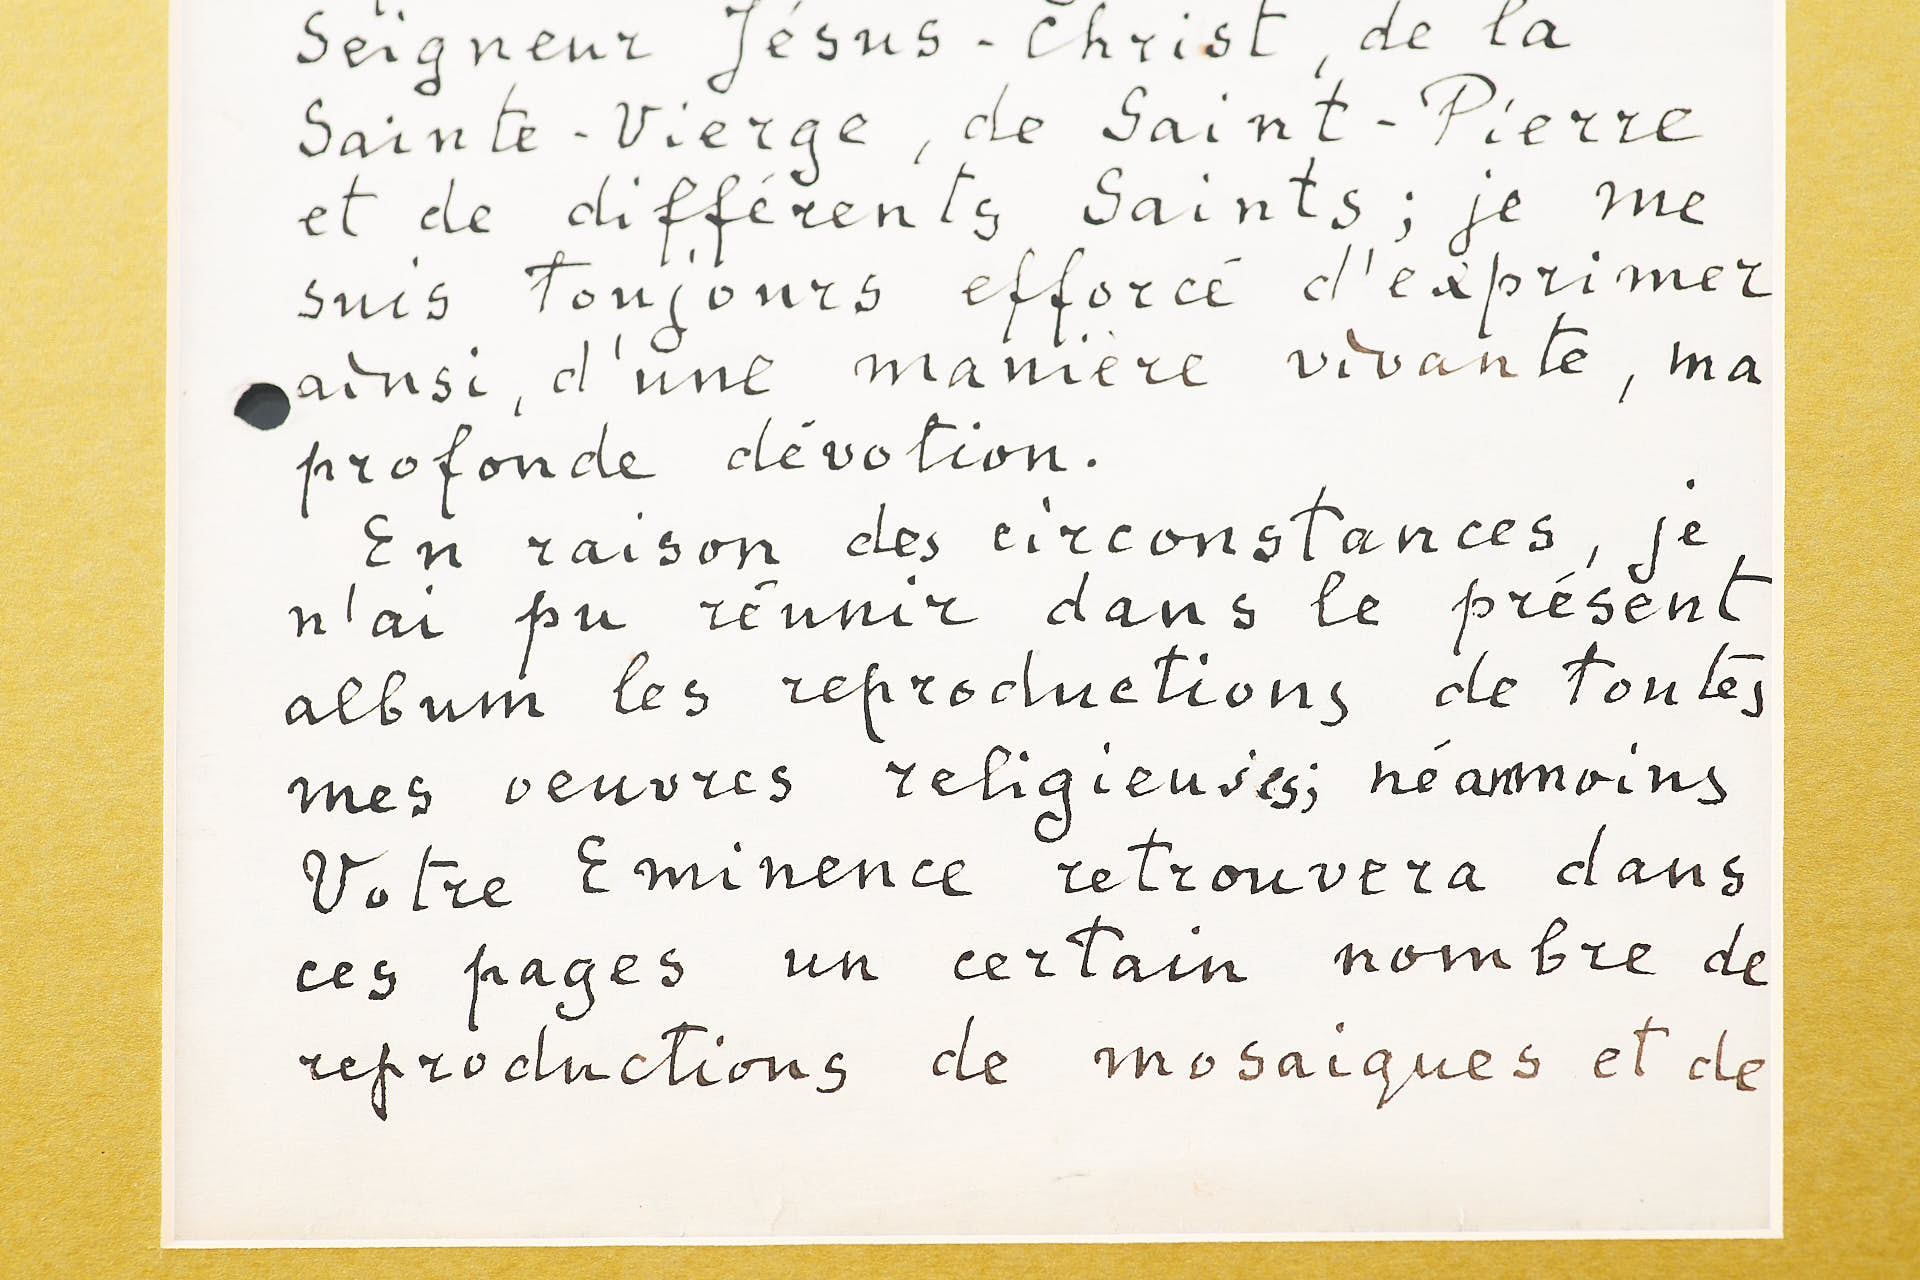 Seigneur Jésus-Christ, de la
Sainte-Vierge, de Saint-Pierre
et de différents Saints; je me
suis toujours efforcé d'exprimer
ainsi, d'une manière vivante, ma
profonde dévotion.
En raison des circonstances, je
n'ai pu réunir dans le présent
album les reproductions de toutes
mes oeuvres religieuses; néanmoins
Votre Eminence retrouvera dans
ces pages un certain nombre de
reproductions de mosaiques et de